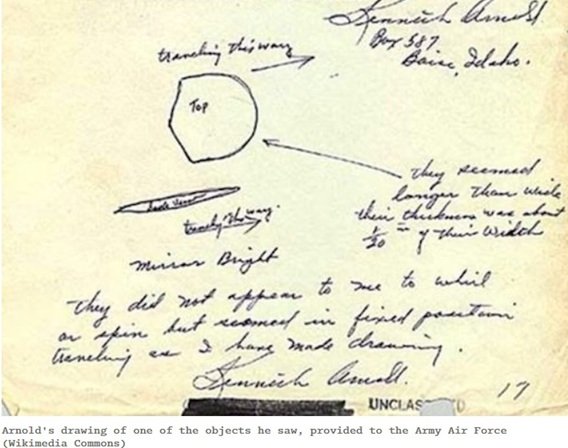 Kenneth Arnold
Box 587
Boise, Idaho.
traveling this way
Top
they seemed
longer than wide
their thickness was about
1/20 th of their width
side view
traveling this way.
Mirror Bright
They did not appear to me to whirl
or spin but seemed in fixed position
traveling as I have made drawing.
Kenneth Arnold.
17
UNCLAS
Arnold's drawing of one of the objects he saw, provided to the Army Air Force
(Wikimedia Commons)